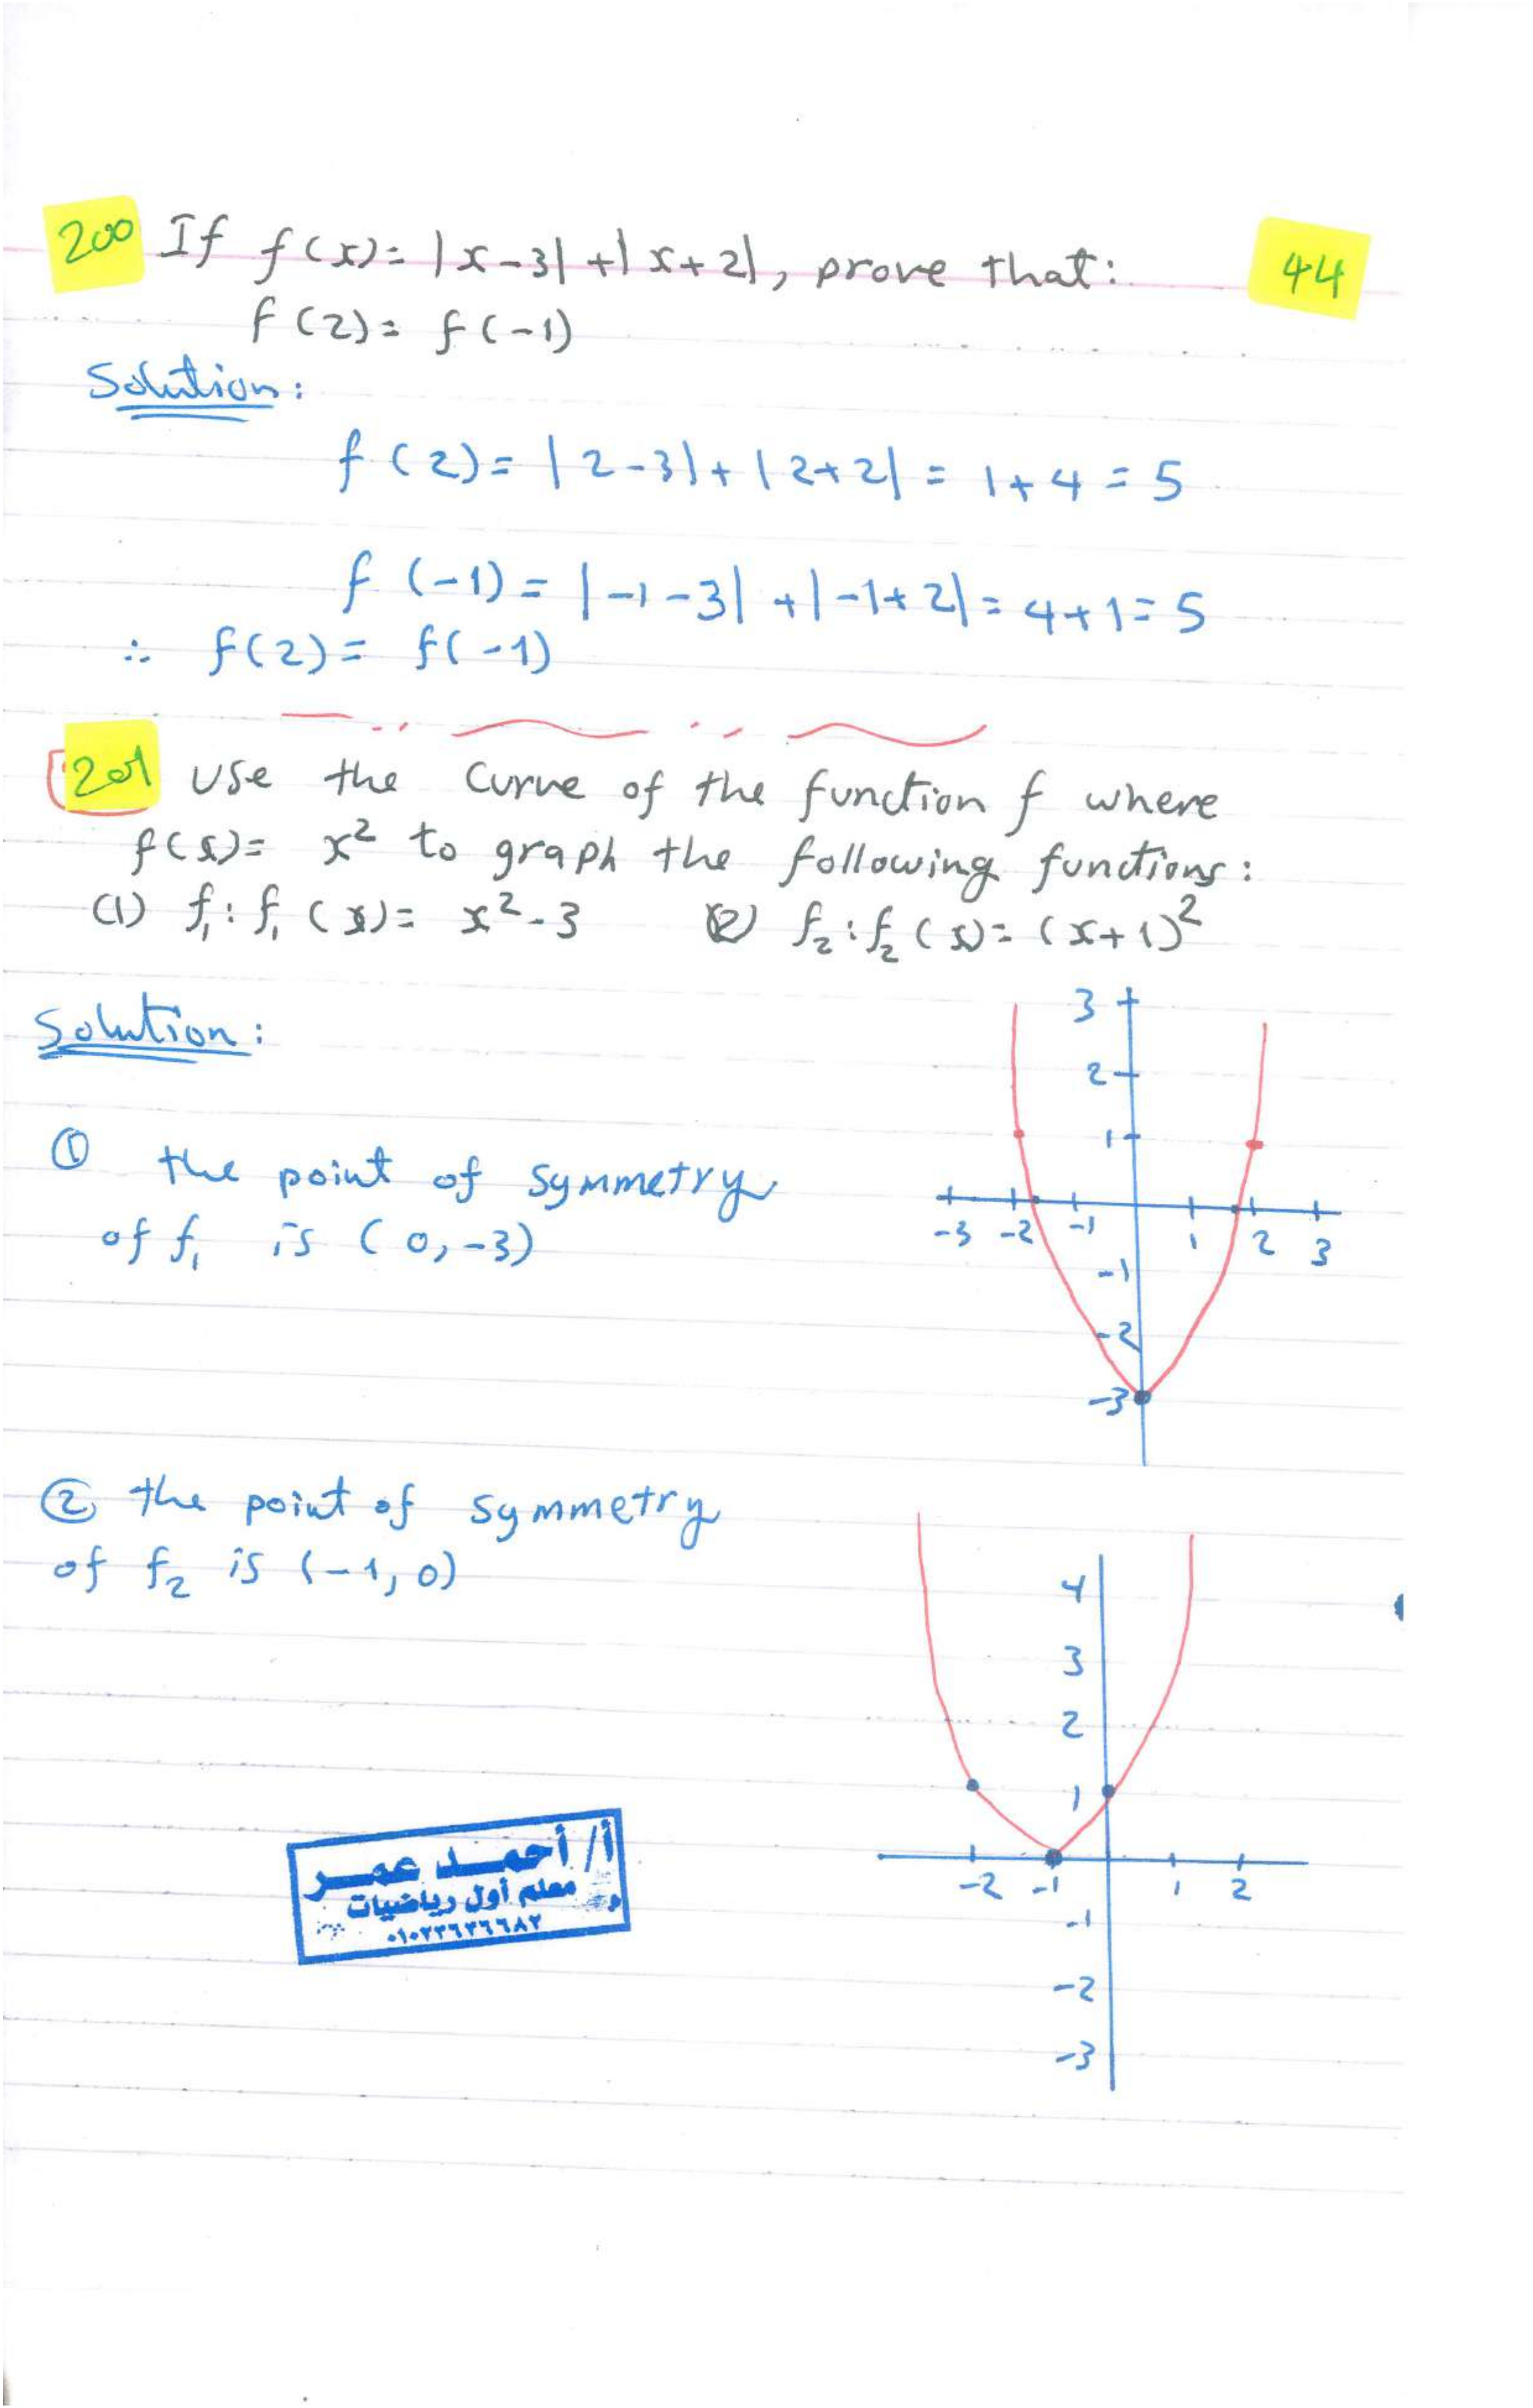 200 If f(x)= |x-3|+|x+2|, prove that: 44
f(2)= f(-1)
Solution:
f(2)= |2-3|+|2+2| = 1+4=5
f(-1)= |-1-3|+|-1+2|= 4+1=5
∴ f(2)= f(-1)
201 Use the curve of the function f where
f(x)= x² to graph the following functions:
(1) f₁: f₁(x)= x²-3 (2) f₂: f₂(x)= (x+1)²
Solution:
3
2
1
-3 -2 -1 1 2 3
-1
-2
-3
① the point of symmetry
of f₁ is (0,-3)
② the point of symmetry
of f₂ is (-1,0)
4
3
2
1
-2 -1 1 2
-1
-2
-3
أ/ أحمد عمر
معلم أول رياضيات